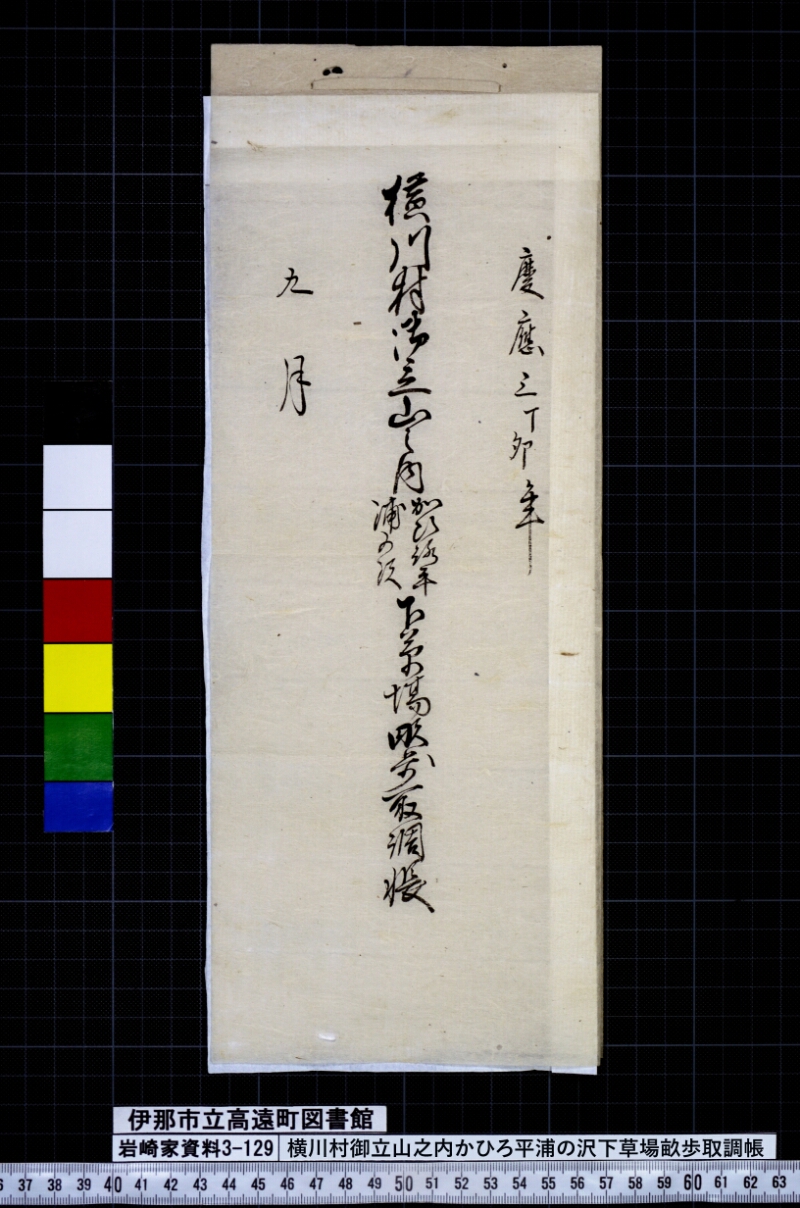 慶應三丁卯年
横川村御立山之内
かひろ平
浦の沢
下草場畝歩取調帳
九月
伊那市立高遠町図書館
岩崎家資料3-129 横川村御立山之内かひろ平浦の沢下草場畝歩取調帳
37 38 39 40 41 42 43 44 45 46 47 48 49 50 51 52 53 54 55 56 57 58 59 60 61 62 63